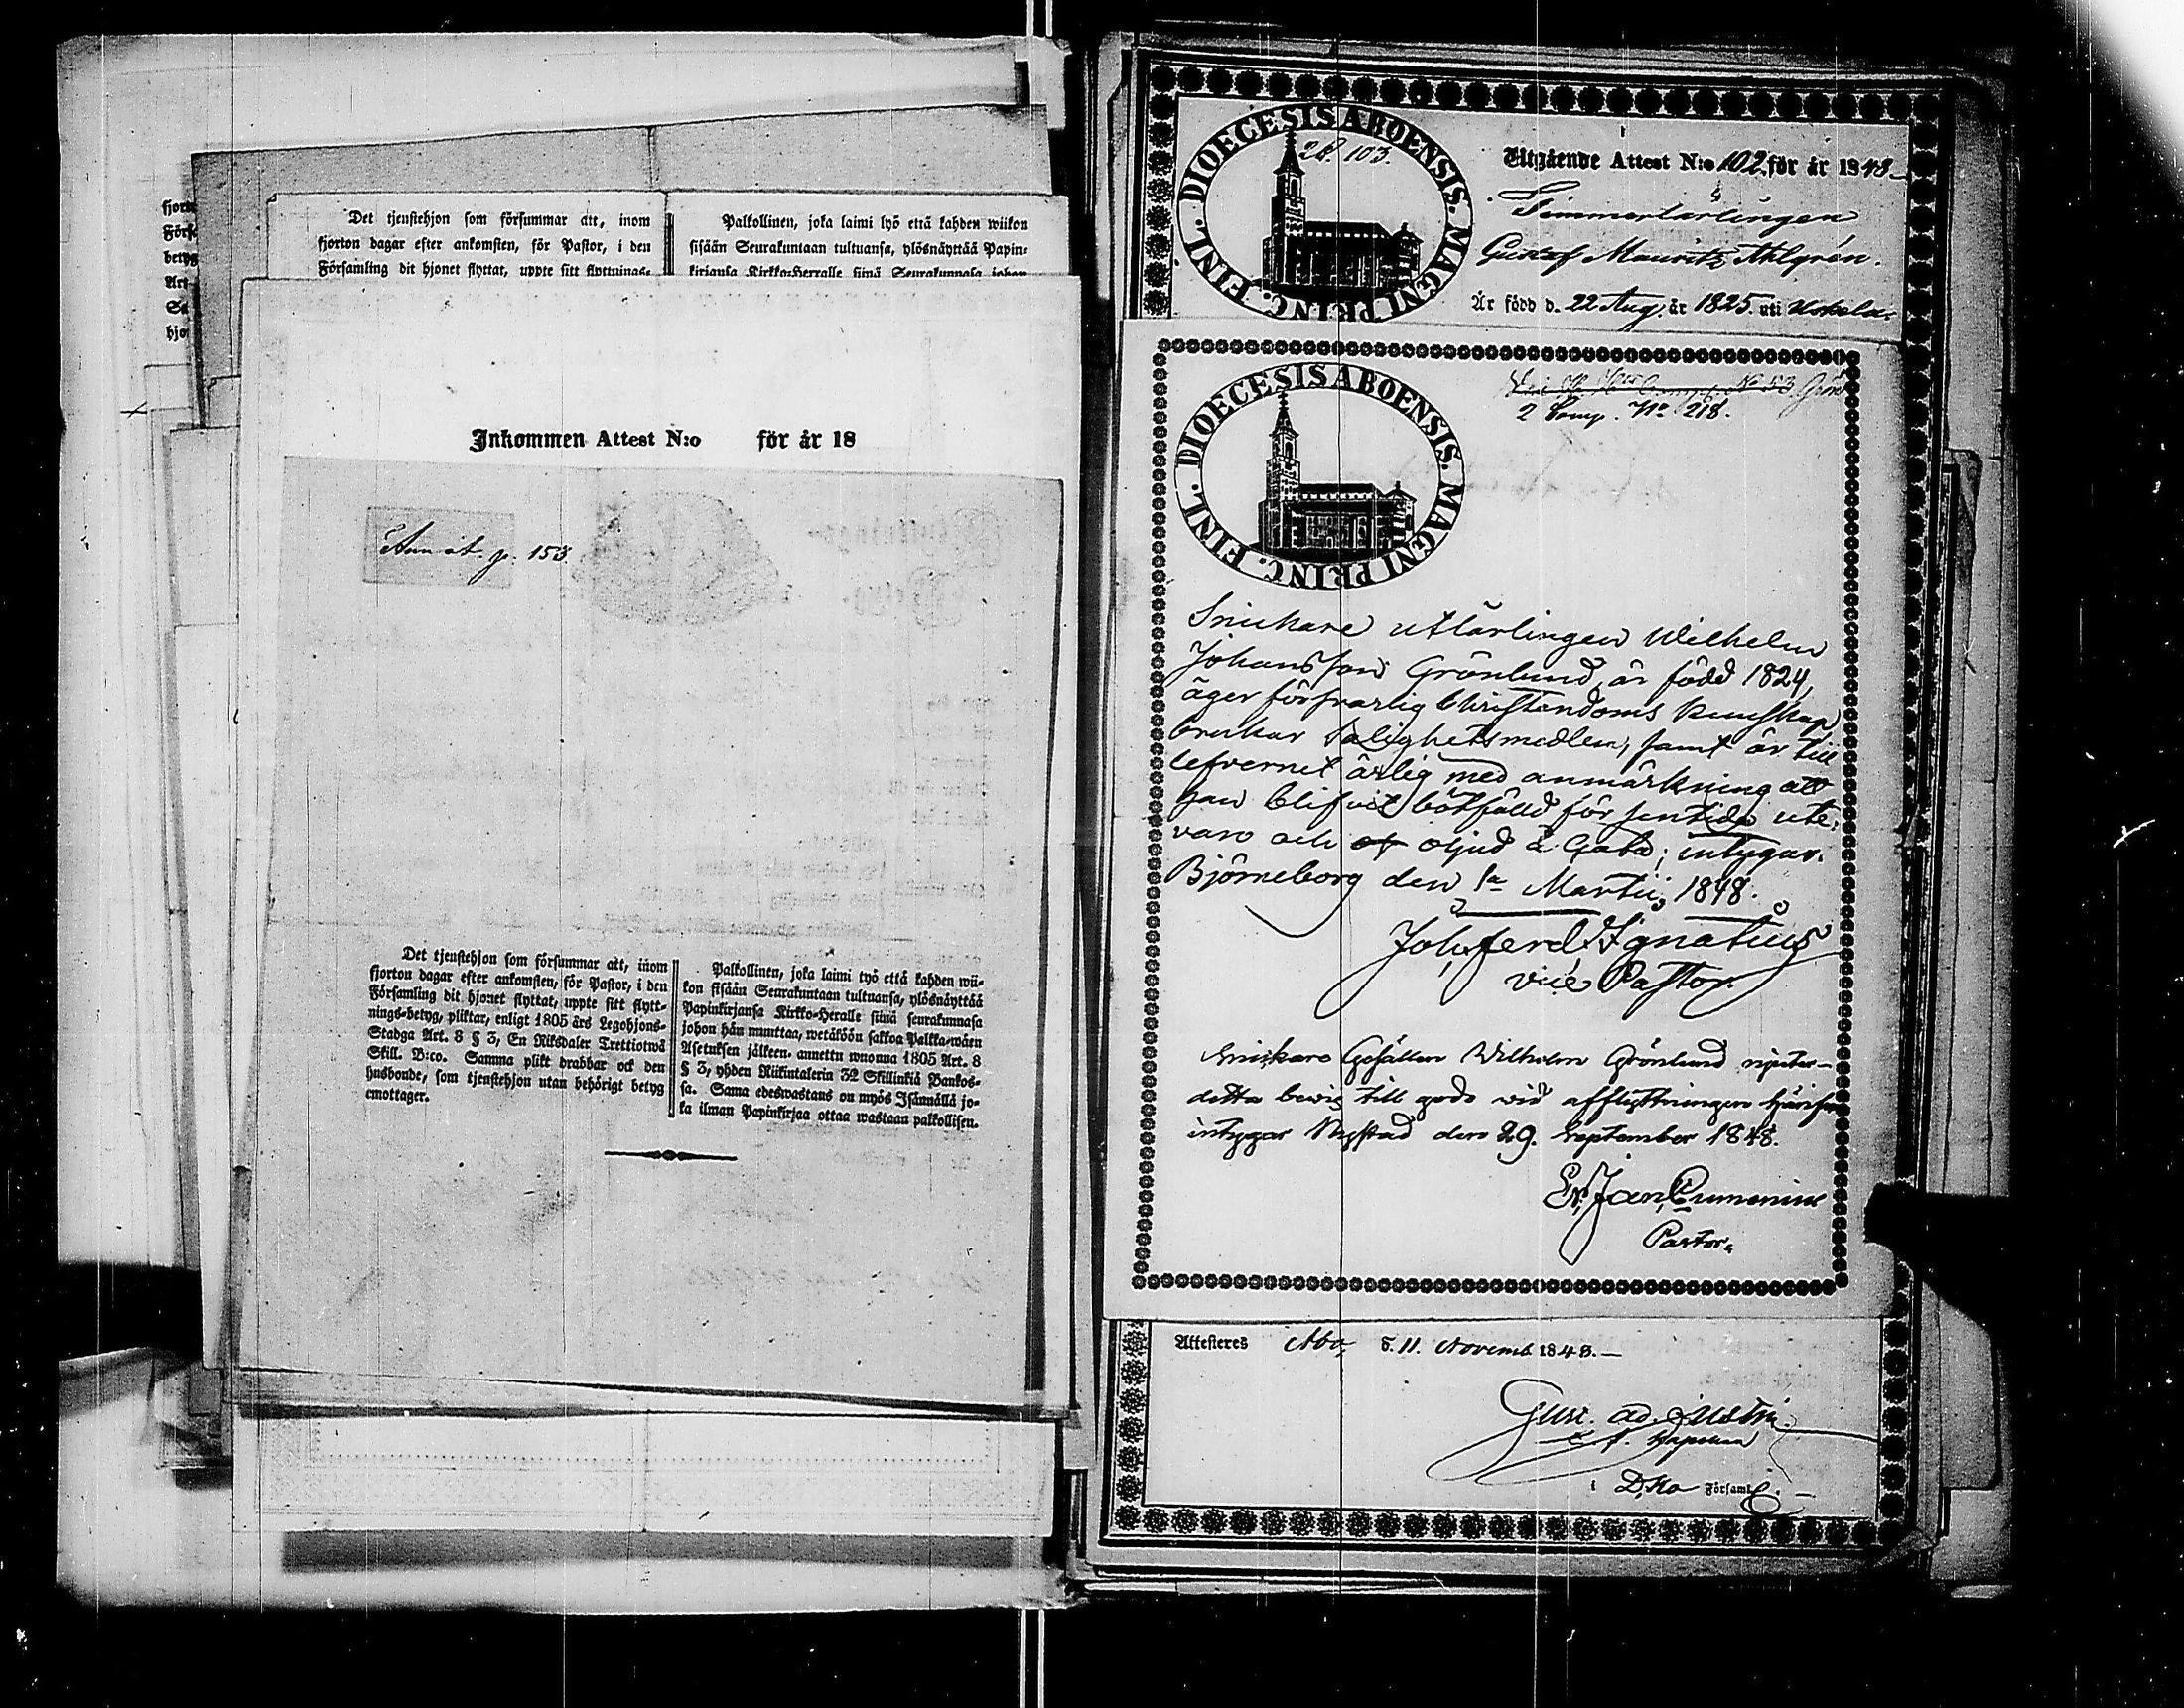 Det tjenstehjon som försummar att, inom
fjorton dagar efter ankomsten, för Pastor, i den
Församling dit hjonet flyttat, uppte sitt flyttnings-
Palkollinen, joka laimi lyö että kahden wiikon
sisään Seurakuntaan tultuansa, ylösnäyttää Papin-
kirjansa Kirkko-Herralle siinä Seurakunnasa johon
Inkommen Attest N:o för år 18
Annot. p. 153.
Det tjenstehjon som försummar att, inom
fjorton dagar efter ankomsten, för Pastor, i den
Församling dit hjonet flyttat, uppte sitt flytt-
nings-betyg, pliktar, enligt 1805 års Legohjons-
Stadga Art. 8 § 3, En Riksdaler Trettiotwå
Skill. B:co. Samma plikt drabbar ock den
husbonde, som tjenstehjon utan behörigt betyg
emottager.
Palkollinen, joka laimi lyö että kahden wii-
kon sisään Seurakuntaan tultuansa, ylösnäyttää
Papinkirjansa Kirkko-Heralle siinä seurakunnasa
johon hän muuttaa, wetäköön sakkoa Palkka-wäen
Asetuksen jälkeen, annettu wuonna 1805 Art. 8
§ 3, yhden Riikintalerin 32 Skillinkiä Bankos-
sa. Sama edeswastaus on myös Isännällä jo-
ka ilman Papinkirjaa ottaa wastaan palkollisen.
DIOECESIS ABOENSIS. MAGNI PRINC. FINL.
103.
Utgående Attest N:o 102 för år 1848
Timmerlärlingen
Gustaf Mauritz Ahlgrén.
Är född d. 22 Aug. år 1825. uti Uskela
2 Comp. No 218.
DIOECESIS ABOENSIS. MAGNI PRINC. FINL.
Snickare utlärlingen Wilhelm
Johansson Grönlund, är född 1824,
äger försvarlig Christendoms kunskap
brukar Salighetsmedlen, samt är till
lefvernet ärlig med anmärkning att
han blifvit bötfälld för sentida ute-
varo och oljud å Gata; intygar.
Björneborg den 1a Martii, 1848.
Joh. Ferd. Ignatius
vice Pastor.
Snickare Gesällen Wilhelm Grönlund njuter
detta bevis till godo vid afflyttningen härifrån
intygar Nystad den 29. September 1848.
Er. Joh. Cumenius
Pastor.
Attesteres Åbo, d. 11. Novemb. 1848.
Gust. Ad.
i D:ka Församl.